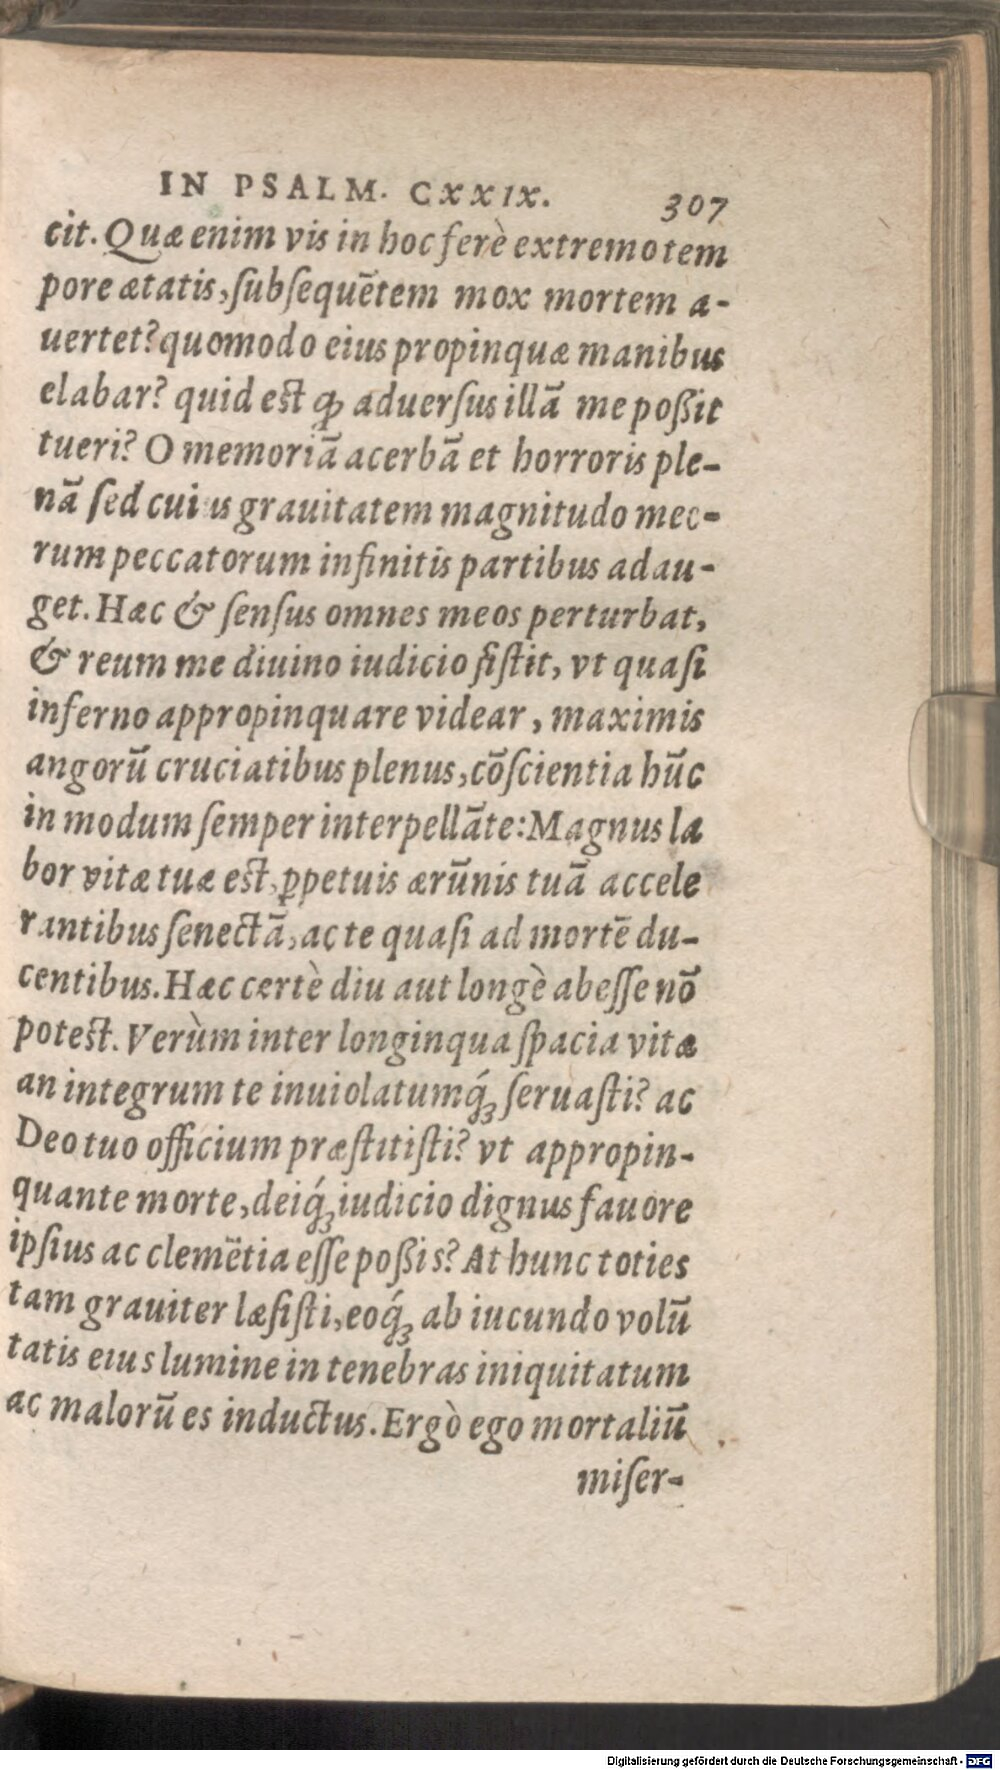 IN PSALM. CXXIX. 307
cit. Quæ enim vis in hoc ferè extremo tem
pore ætatis, ſubſequētem mox mortem a-
uertet? quomodo eius propinquæ manibus
elabar? quid est ꝙ aduerſus illā me poßit
tueri? O memoriā acerbā et horroris ple-
nā ſed cuius grauitatem magnitudo meo-
rum peccatorum infinitis partibus adau-
get. Hæc & ſenſus omnes meos perturbat,
& reum me diuino iudicio ſiſtit, vt quaſi
inferno appropinquare videar, maximis
angorū cruciatibus plenus, cōſcientia hūc
in modum ſemper interpellāte: Magnus la
bor vitæ tuæ est, ꝑpetuis ærūnis tuā accele
rantibus ſenectā, ac te quaſi ad mortē du-
centibus. Hæc certè diu aut longè abeſſe nō
potest. Verùm inter longinqua ſpacia vitæ
an integrum te inuiolatumq́ꝫ ſeruaſti? ac
Deo tuo officium præſtitiſti? vt appropin-
quante morte, deiq́ꝫ iudicio dignus fauore
ipſius ac clemētia eſſe poßis? At hunc toties
tam grauiter læſiſti, eoq́ꝫ ab iucundo volū
tatis eius lumine in tenebras iniquitatum
ac malorū es inductus. Ergò ego mortaliū
miſer-
Digitalisierung gefördert durch die Deutsche Forschungsgemeinschaft - DFG